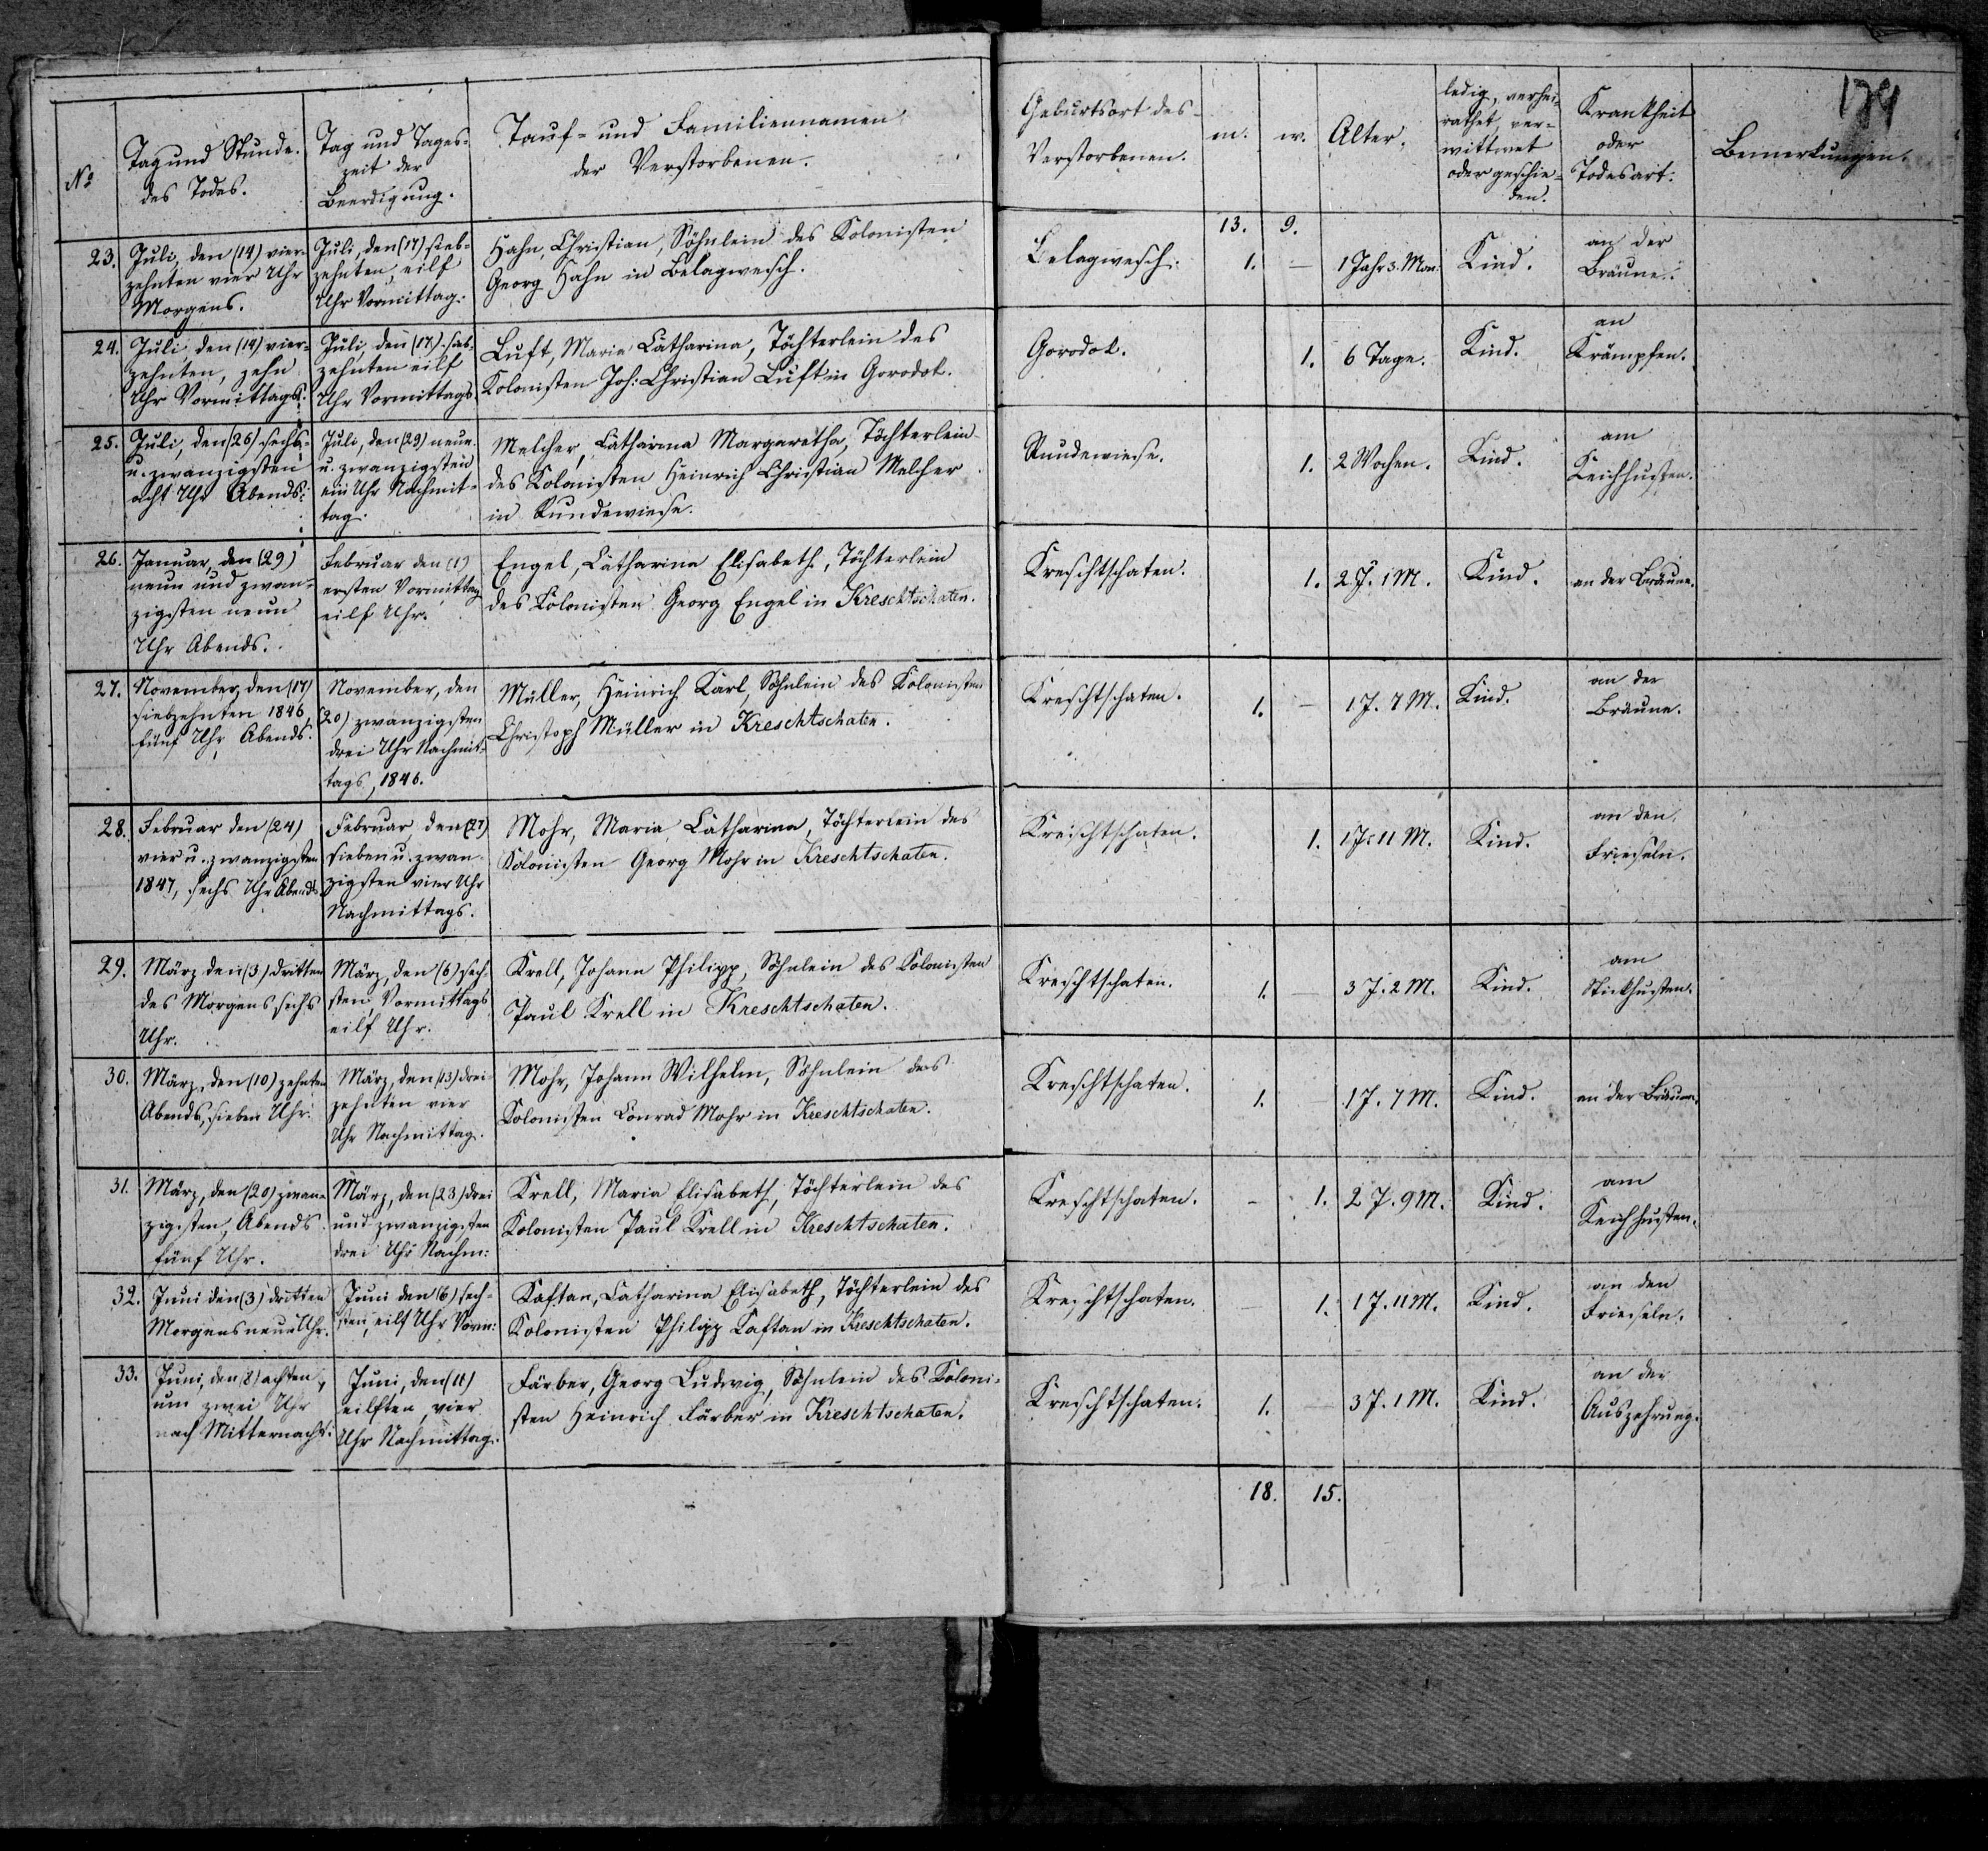 179
No
Tag und Stunde
des Todes.
Tag und Tages-
zeit der
Beerdigung.
Tauf- und Familiennamen
der Verstorbenen.
Geburtsort des
Verstorbenen.
m.
w.
Alter.
ledig, verhei-
rathet, ver-
wittwet
oder geschie-
den.
Krankheit
oder
Todesart.
Bemerkungen.
13. 9.
23.
Juli, den (14) vier-
zehnten vier Uhr
Morgens.
Juli, den (17) sieb-
zehnten, eilf
Uhr Vormittag.
Hahn, Christian, Söhnlein des Kolonisten
Georg Hahn in Belagwesch.
Belagwesch.
1. —
1 Jahr 3. Mon:
Kind.
an der
Bräune.
24.
Juli, den (14) vier-
zehnten, zehn
Uhr Vormittags.
Juli, den (17) sieb-
zehnten eilf
Uhr Vormittags
Luft, Maria Catharina, Töchterlein des
Kolonisten Joh: Christian Luft in Gorodok.
Gorodok.
1.
6 Tage.
Kind.
an
Krämpfen.
25.
Juli, den (26) sechs-
u. zwanzigsten
acht Uhr Abends.
Juli, den (29) neun
u. zwanzigsten
ein Uhr Nachmit-
tag.
Melcher, Catharina Margaretha, Töchterlein
des Kolonisten Heinrich Christian Melcher
in Rundewiese.
Rundewiese.
1.
2 Wochen.
Kind.
am
Keichhusten.
26.
Januar, den (29)
neun und zwan-
zigsten neun
Uhr Abends.
Februar den (1)
ersten Vormittag
eilf Uhr.
Engel, Catharina Elisabeth, Töchterlein
des Kolonisten Georg Engel in Kreschtschaten.
Kreschtschaten.
1.
2 J. 1 M.
Kind.
an der Bräune.
27.
November, den (17)
siebzehnten 1846,
fünf Uhr Abends.
November, den
(20) zwanzigsten
drei Uhr Nachmit-
tags, 1846.
Müller, Heinrich Karl, Söhnlein des Kolonisten
Christoph Müller in Kreschtschaten.
Kreschtschaten.
1. —
1 J. 7 M.
Kind.
an der
Bräune.
28.
Februar den (24)
vier u. zwanzigsten
1847, sechs Uhr Abends
Februar, den (27)
sieben u. zwan-
zigsten vier Uhr
Nachmittags.
Mohr, Maria Catharina, Töchterlein des
Kolonisten Georg Mohr in Kreschtschaten.
Kreschtschaten.
1.
1 J. 11 M.
Kind.
an den
Frieseln.
29.
März den (3) dritten
des Morgens sechs
Uhr.
März, den (6) sech-
sten, Vormittags
eilf Uhr.
Krell, Johann Philipp, Söhnlein des Kolonisten
Paul Krell in Kreschtschaten.
Kreschtschaten.
1. —
3 J. 2 M.
Kind.
am
Stickhusten.
30.
März, den (10) zehnten
Abends, sieben Uhr.
März, den (13) drei-
zehnten vier
Uhr Nachmittag.
Mohr, Johann Wilhelm, Söhnlein des
Kolonisten Conrad Mohr in Kreschtschaten.
Kreschtschaten.
1. —
1 J. 7 M.
Kind.
an der Bräune.
31.
März, den (20) zwan-
zigsten, Abends
fünf Uhr.
März, den (23) drei
und zwanzigsten
drei Uhr Nachm:
Krell, Maria Elisabeth, Töchterlein des
Kolonisten Paul Krell in Kreschtschaten.
Kreschtschaten.
— 1.
2 J. 9 M.
Kind.
am
Keichhusten.
32.
Juni den (3) dritten
Morgens neun Uhr.
Juni den (6) sech-
sten, eilf Uhr Vorm:
Kaftan, Catharina Elisabeth, Töchterlein des
Kolonisten Philipp Kaftan in Kreschtschaten.
Kreschtschaten.
— 1.
1 J. 11 M.
Kind.
an den
Frieseln.
33.
Juni, den (8) achten,
um zwei Uhr
nach Mitternacht.
Juni, den (11)
eilften, vier
Uhr Nachmittag.
Färber, Georg Ludwig, Söhnlein des Koloni-
sten Heinrich Färber in Kreschtschaten.
Kreschtschaten.
1.
3 J. 1 M.
Kind.
an der
Auszehrung.
18. 15.